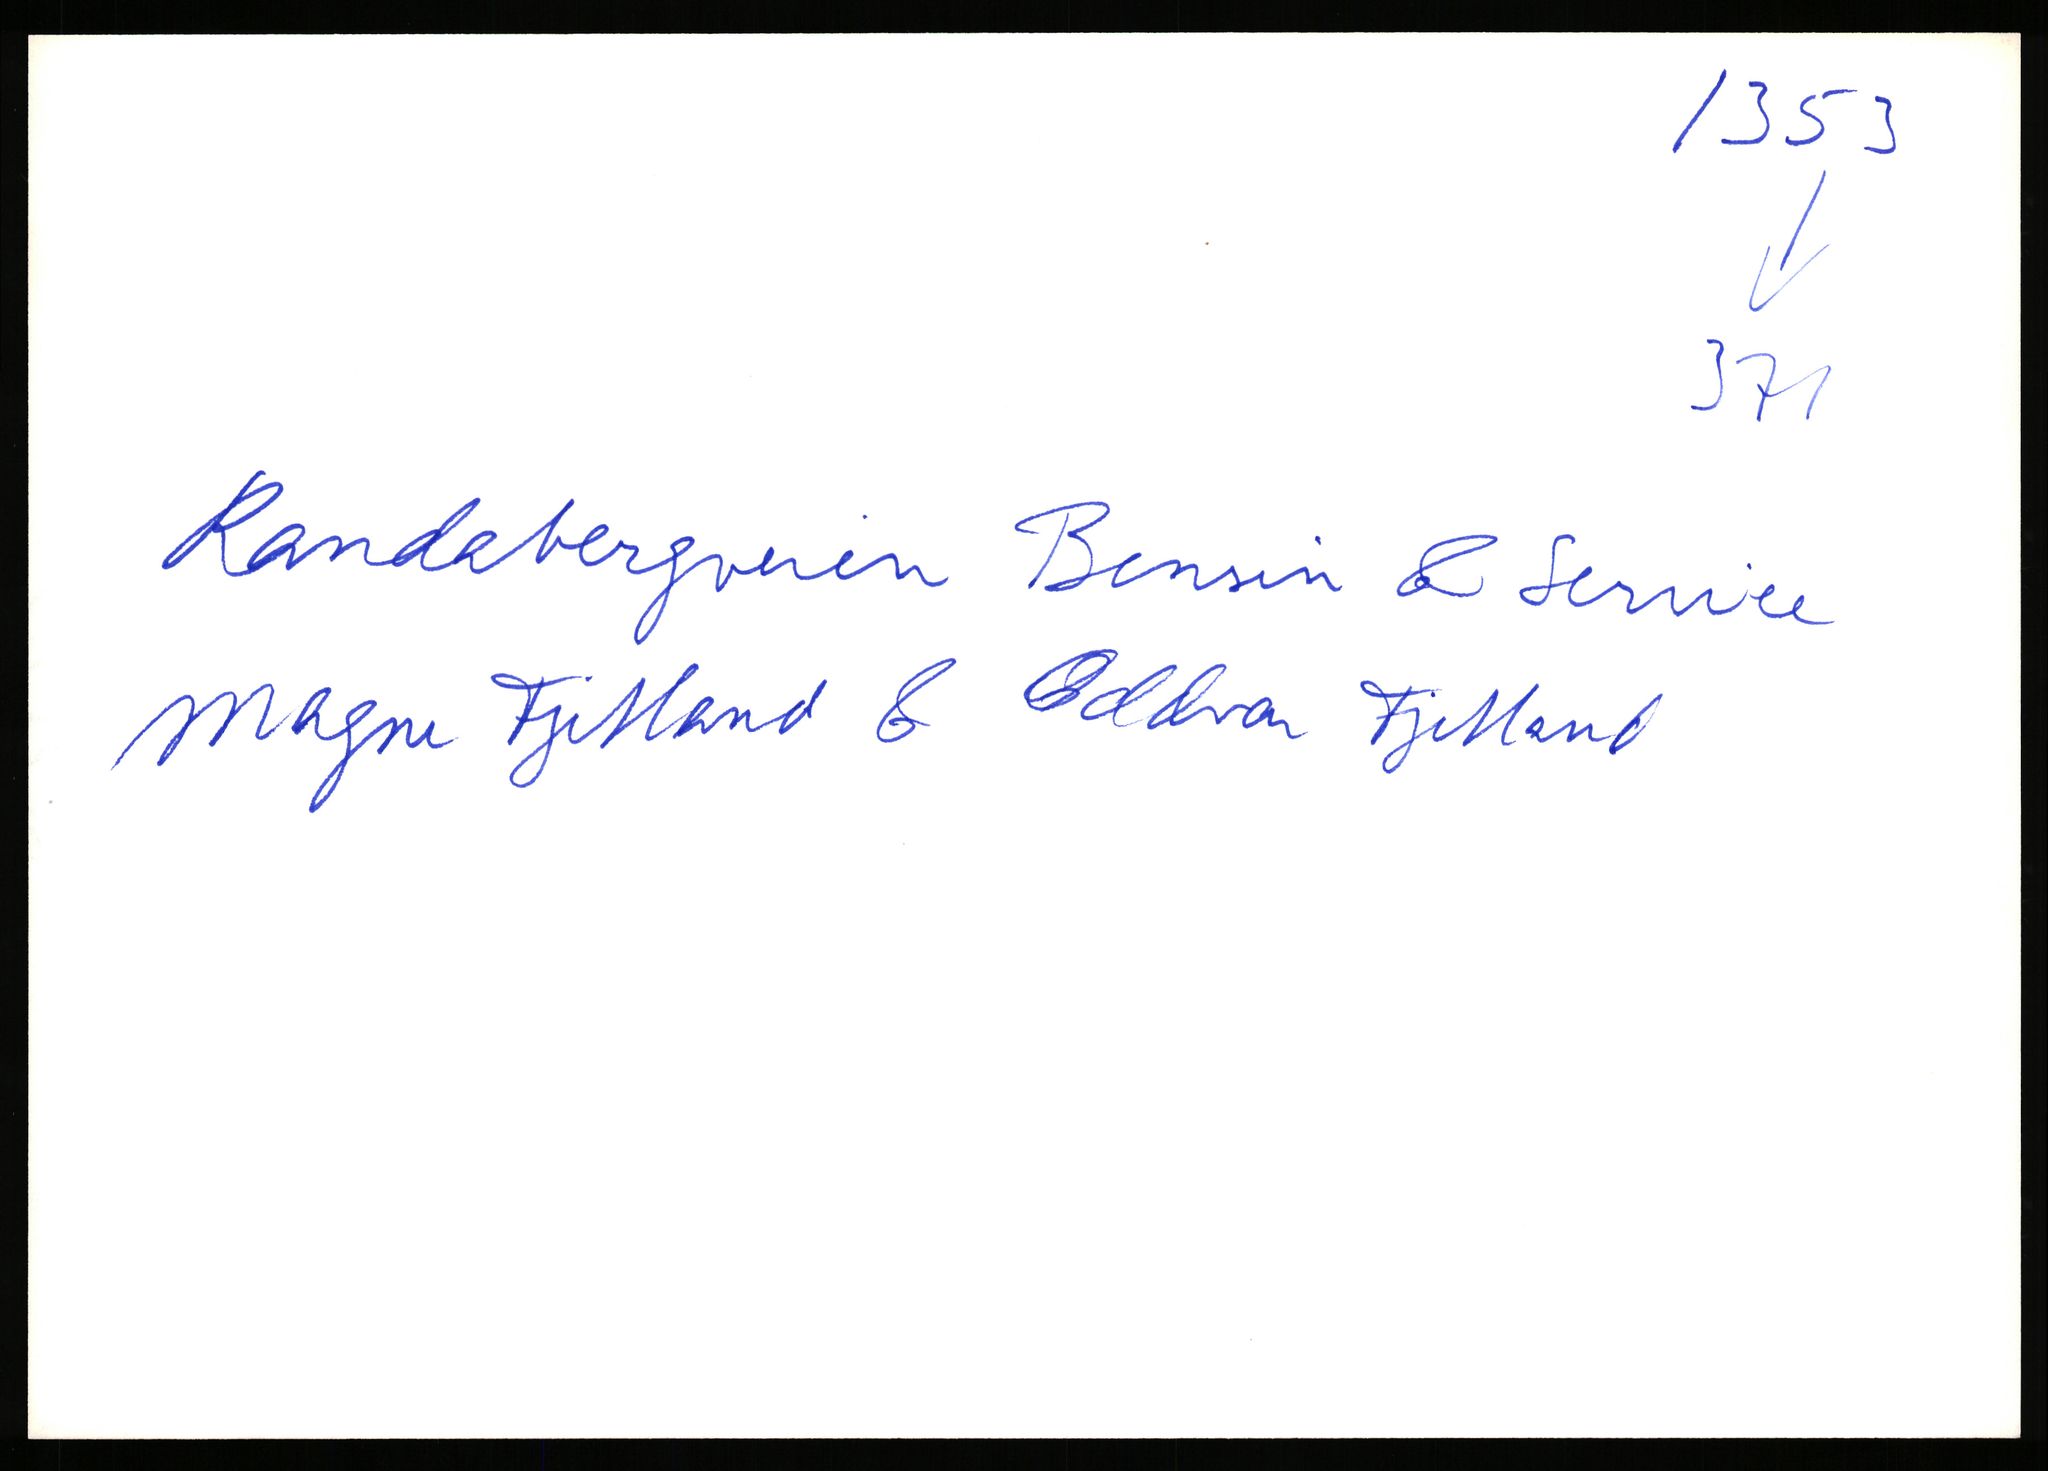 1353
371
Randabergveien Bensin & Service
Magne Fjetland & Oddvar Fjetland